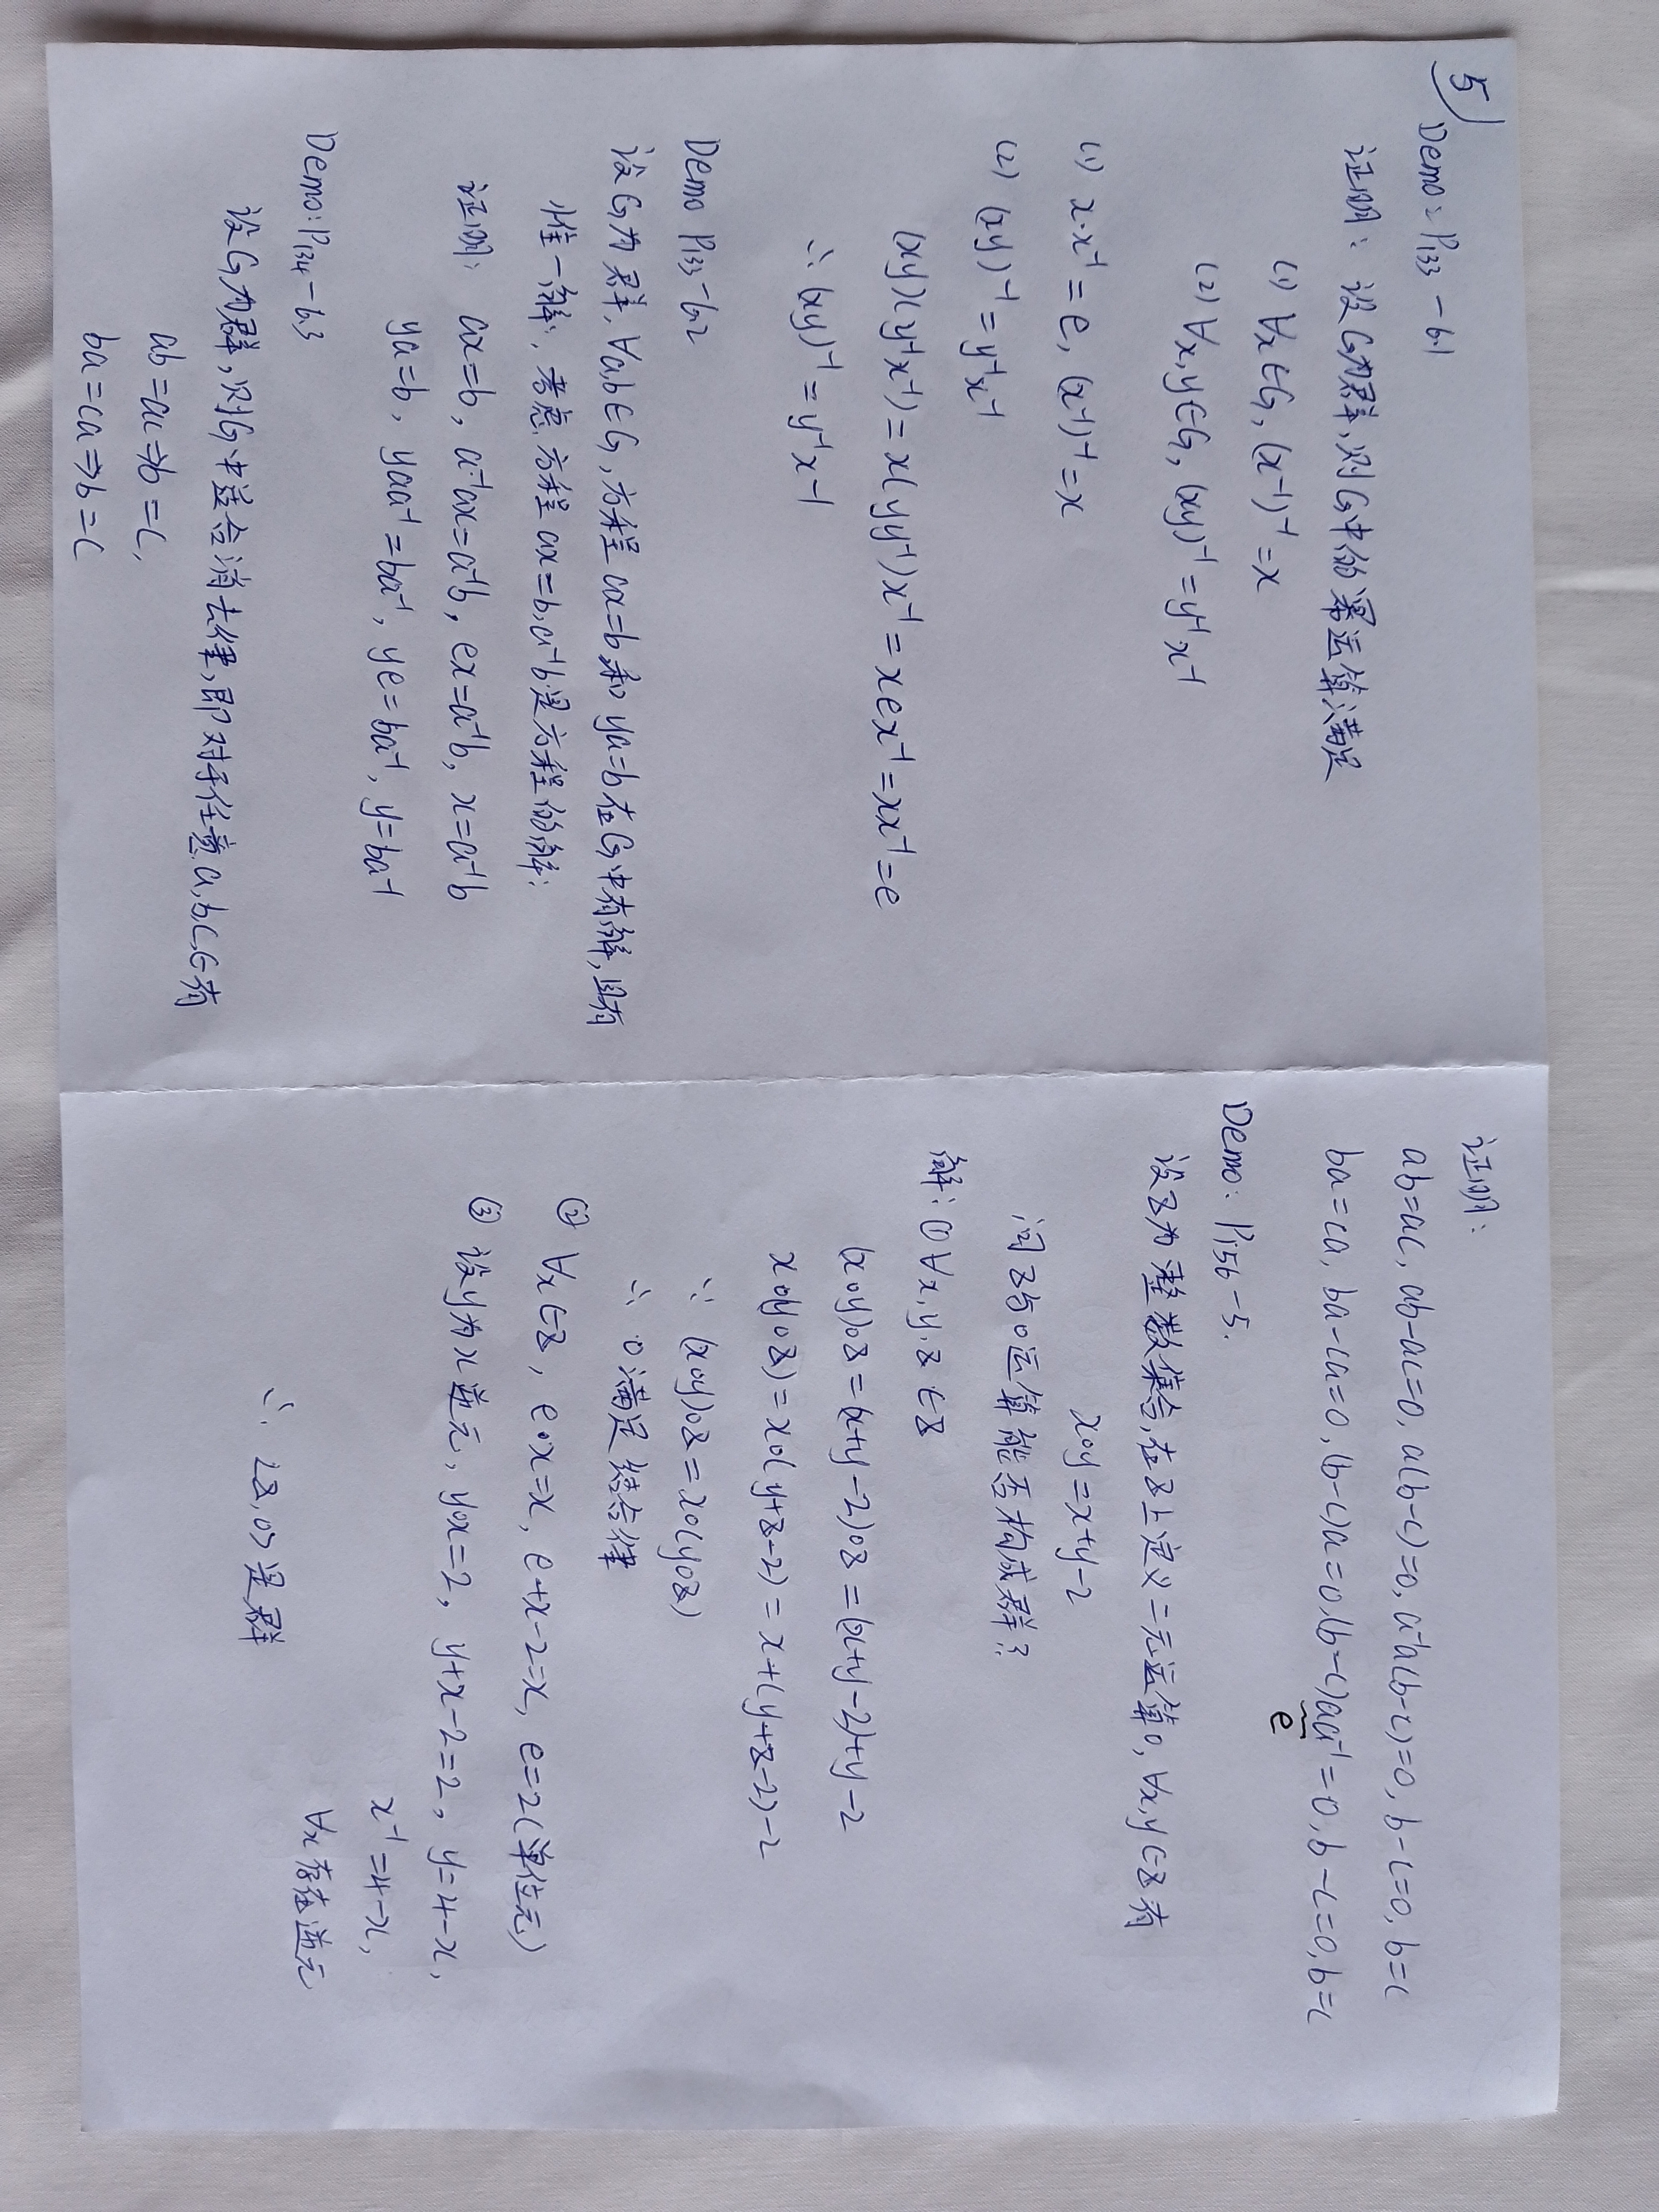 5
Demo: P133-6.1
证明: 设G为群,则G中的幂运算满足
(1) ∀x∈G, (x⁻¹)⁻¹=x
(2) ∀x,y∈G, (xy)⁻¹=y⁻¹x⁻¹
(1) x·x⁻¹=e, (x⁻¹)⁻¹=x
(2) (xy)⁻¹=y⁻¹x⁻¹
(xy)(y⁻¹x⁻¹)=x(yy⁻¹)x⁻¹=xex⁻¹=xx⁻¹=e
∴ (xy)⁻¹=y⁻¹x⁻¹
Demo P133-6.2
设G为群,∀a,b∈G,方程ax=b和ya=b在G中有解,且有
惟一解,考虑方程ax=b,a⁻¹b是方程的解:
证明: ax=b, a⁻¹ax=a⁻¹b, ex=a⁻¹b, x=a⁻¹b
ya=b, yaa⁻¹=ba⁻¹, ye=ba⁻¹, y=ba⁻¹
Demo: P134-6.3
设G为群,则G中适合消去律,即对于任意a,b,c,∈有
ab=ac⇒b=c,
ba=ca⇒b=c
证明:
ab=ac, ab-ac=0, a(b-c)=0, a⁻¹a(b-c)=0, b-c=0, b=c
ba=ca, ba-ca=0, (b-c)a=0,(b-c)aa⁻¹=0, b-c=0, b=c
e
Demo: P156-5.
设Z为整数集合,在Z上定义二元运算o,∀x,y∈Z有
xoy=x+y-2
问Z与o运算能否构成群?
解: ①∀x,y,z∈Z
(xoy)oz=(x+y-2)oz=(x+y-2)+y-2
xo(yoz)=xo(y+z-2)=x+(y+z-2)-2
∵ (xoy)oz=xo(yoz)
∴ o满足结合律
② ∀x∈Z, eox=x, e+x-2=x, e=2(单位元)
③ 设y为x逆元, yox=2, y+x-2=2, y=4-x,
x⁻¹=4-x,
∀x存在逆元
∴ <Z,o>是群